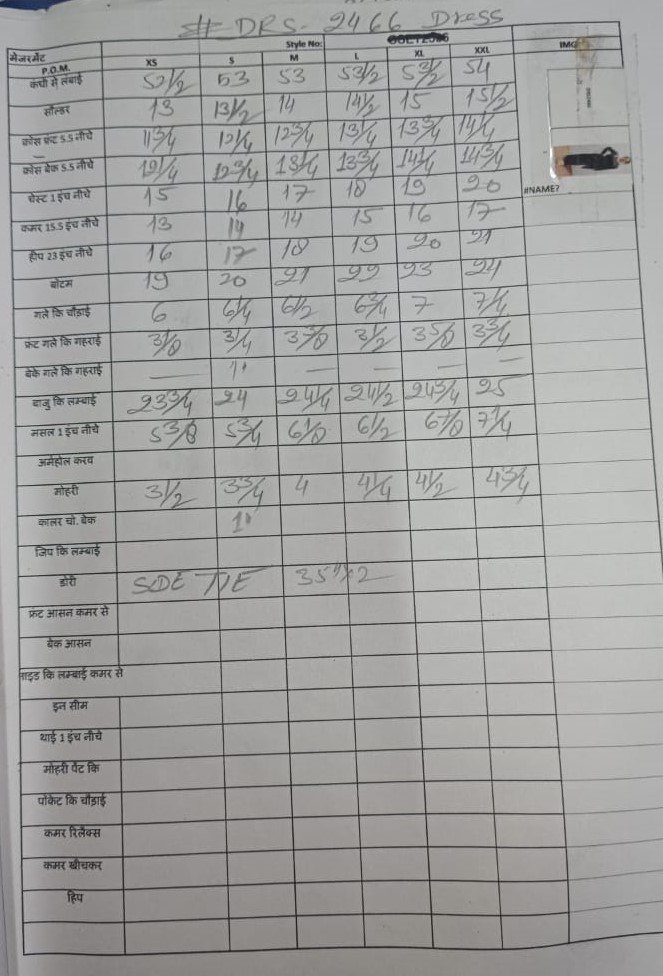 # DRS. 2466 Dress
मेजरमेंट Style No: IMG
P.O.M. XS S M L XL XXL
कंधो से लंबाई 52 1/2 53 53 53 1/2 53 1/2 54
सोल्डर 13 13 1/2 14 14 1/2 15 15 1/2
क्रोस फ्रंट 5.5 नीचे 11 3/4 12 1/4 12 3/4 13 1/4 13 3/4 14 1/4
क्रोस बेक 5.5 नीचे 12 1/4 12 3/4 13 1/4 13 3/4 14 1/4 14 3/4
चेस्ट 1 इंच नीचे 15 16 17 18 19 20 #NAME?
कमर 15.5 इंच नीचे 13 14 14 15 16 17
हीप 23 इंच नीचे 16 17 18 19 20 21
बोटम 19 20 21 22 23 24
गले कि चौड़ाई 6 6 1/4 6 1/2 6 3/4 7 7 1/4
फ्रंट गले कि गहराई 3 1/8 3 1/4 3 3/8 3 1/2 3 5/8 3 3/4
बेके गले कि गहराई — 1" — — — —
बाजु कि लम्बाई 23 3/4 24 24 1/4 24 1/2 24 3/4 25
मसल 1 इंच नीचे 5 3/8 5 3/4 6 1/8 6 1/2 6 7/8 7 1/4
अर्महोल करव
मोहरी 3 1/2 3 3/4 4 4 1/4 4 1/2 4 3/4
कालर चो. बेक 1"
जिप कि लम्बाई
डोरी SDE TIE 35"x2
फ्रंट आसन कमर से
बेक आसन
साइड कि लम्बाई कमर से
इन सीम
थाई 1 इंच नीचे
मोहरी पैंट कि
पॉकेट कि चौड़ाई
कमर रिलैक्स
कमर खीचकर
हिप